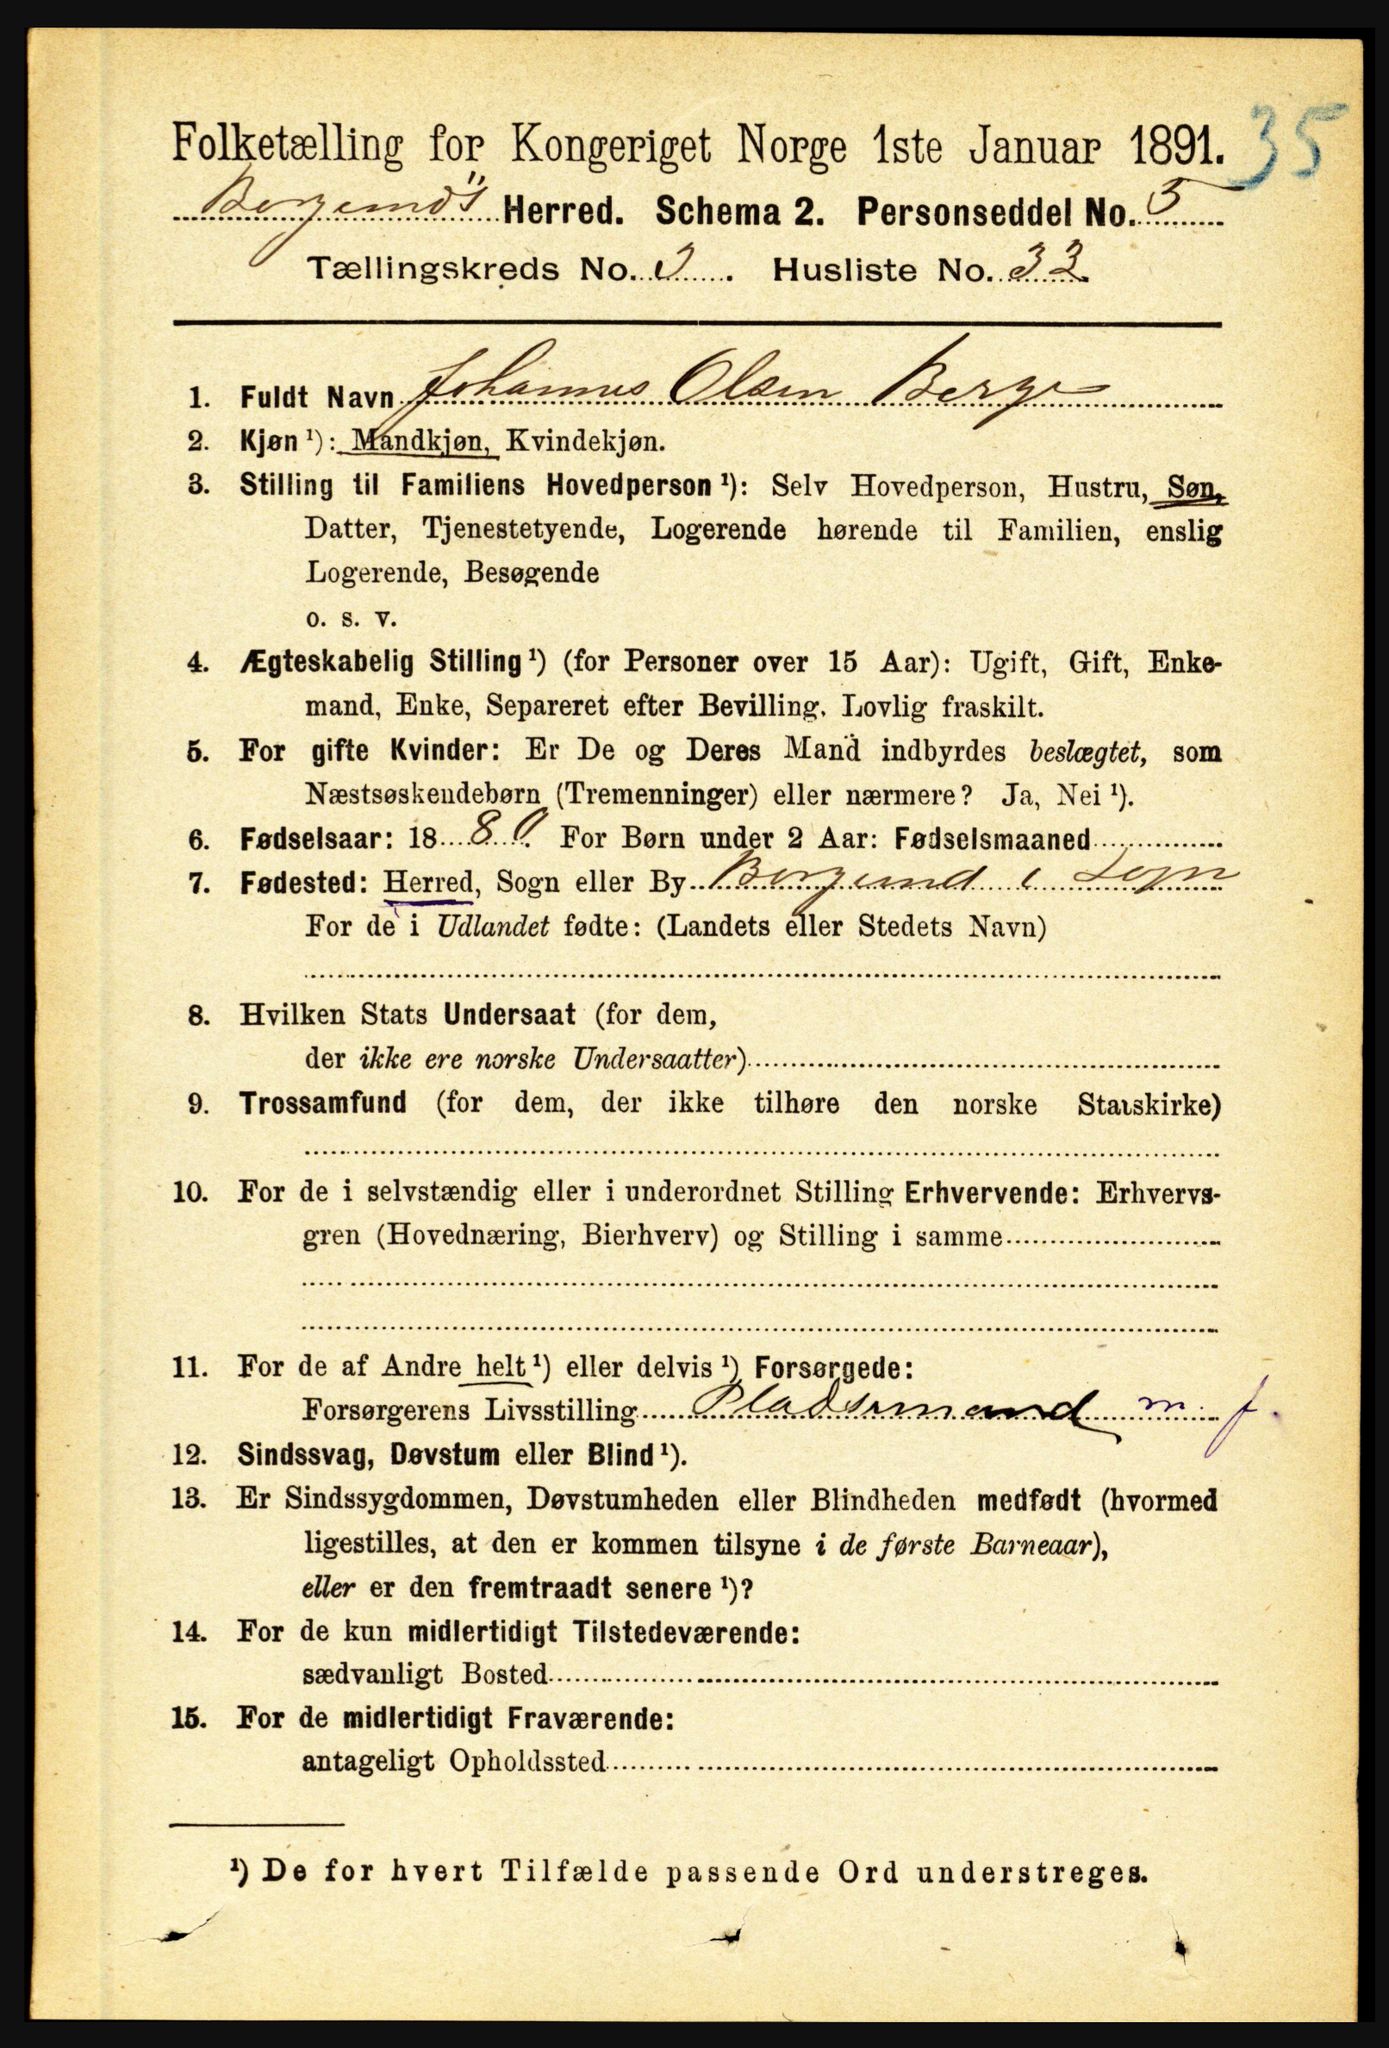 Folketælling for Kongeriget Norge 1ste Januar 1891. 35
Borgund's Herred. Schema 2. Personseddel No. 5
Tællingskreds No. 3. Husliste No. 33
1. Fuldt Navn Johannes Olsen Berge
2. Kjøn ¹): Mandkjøn, Kvindekjøn.
3. Stilling til Familiens Hovedperson ¹): Selv Hovedperson, Hustru, Søn,
Datter, Tjenestetyende, Logerende hørende til Familien, enslig
Logerende, Besøgende
o. s. v.
4. Ægteskabelig Stilling ¹) (for Personer over 15 Aar): Ugift, Gift, Enke-
mand, Enke, Separeret efter Bevilling. Lovlig fraskilt.
5. For gifte Kvinder: Er De og Deres Mand indbyrdes beslægtet, som
Næstsøskendebørn (Tremenninger) eller nærmere? Ja, Nei ¹).
6. Fødselsaar: 18 80. For Børn under 2 Aar: Fødselsmaaned
7. Fødested: Herred, Sogn eller By Borgund i Sogn
For de i Udlandet fødte: (Landets eller Stedets Navn)
8. Hvilken Stats Undersaat (for dem,
der ikke ere norske Undersaatter)
9. Trossamfund (for dem, der ikke tilhøre den norske Statskirke)
10. For de i selvstændig eller i underordnet Stilling Erhvervende: Erhvervs-
gren (Hovednæring, Bierhverv) og Stilling i samme
11. For de af Andre helt ¹) eller delvis ¹) Forsørgede:
Forsørgerens Livsstilling Pladsemand m. f.
12. Sindssvag, Døvstum eller Blind ¹).
13. Er Sindssygdommen, Døvstumheden eller Blindheden medfødt (hvormed
ligestilles, at den er kommen tilsyne i de første Barneaar),
eller er den fremtraadt senere ¹)?
14. For de kun midlertidigt Tilstedeværende:
sædvanligt Bosted
15. For de midlertidigt Fraværende:
antageligt Opholdssted
¹) De for hvert Tilfælde passende Ord understreges.